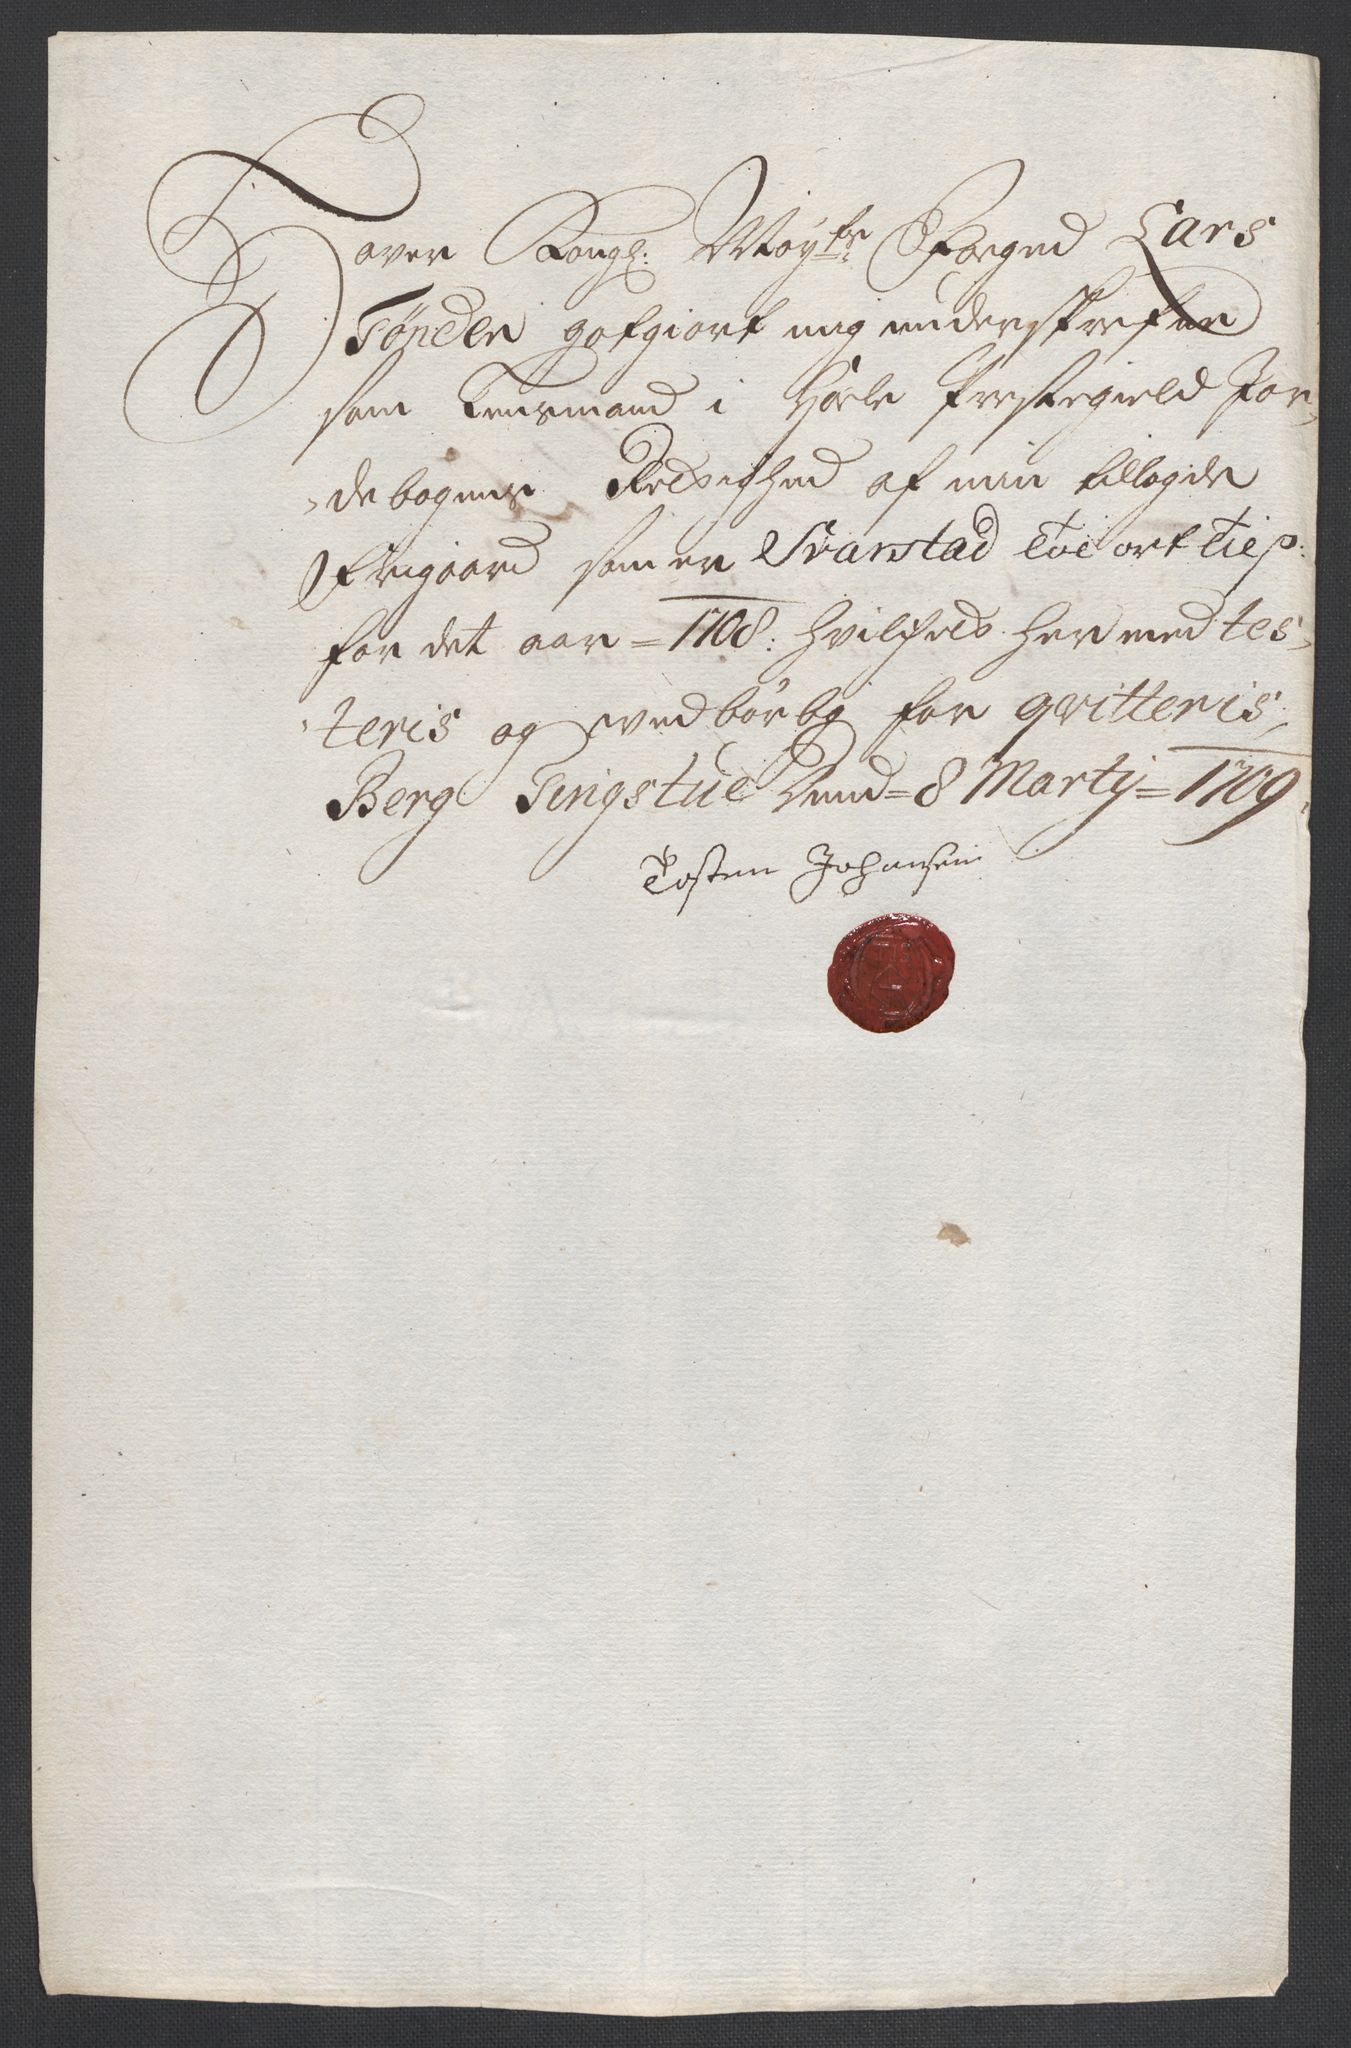 Hafver Kongl: Maÿtts Foeged Lars
Tønder gotgiort mig underskrefne
som Lensmand i Hole Prestegield Jor-
debogens Retzighed af min tillagde
Frigaard som er Svarstad Toe ort Tie s:
for det aar = 1708: hvilched her med tes-
teris og ved børlig for qvitteris,
Berg Tingstue Dend = 8 Martij = 1709.
Tosten Johansen